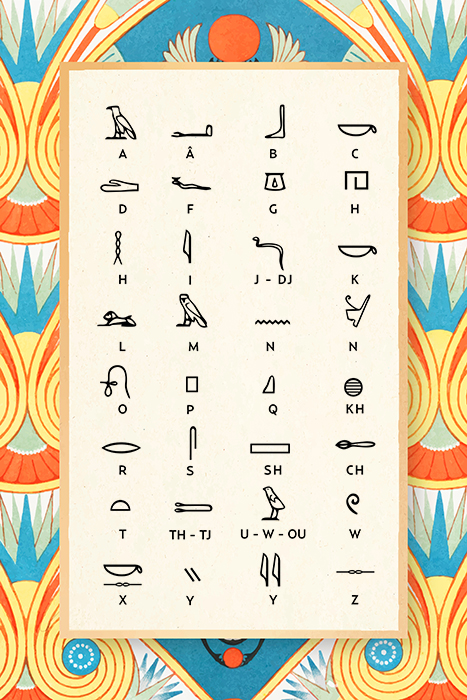 A Â B C
D F G H
H I J - DJ K
L M N N
O P Q KH
R S SH CH
T TH - TJ U - W - OU W
X Y Y Z